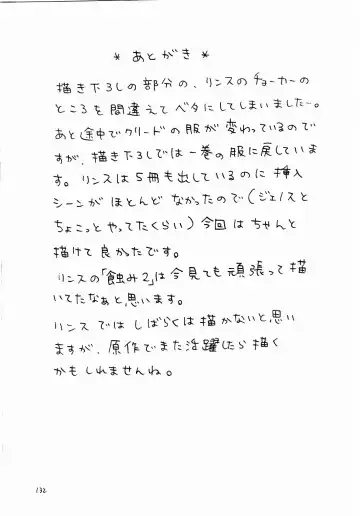 * あとがき *
描き下ろしの部分の、リンスのチョーカーの
ところを間違えてベタにしてしまいました〜。
あと途中でクリードの服が変わっているので
すが、描き下ろしでは一巻の服に戻していま
す。リンスは5冊も出しているのに挿入
シーンがほとんどなかったので(ジェノスと
ちょこっとやってたくらい)今回はちゃんと
描けて良かったです。
リンスの「蝕み2」は今見ても頑張って描
いてたなぁと思います。
リンスではしばらくは描かないと思い
ますが、原作でまた活躍したら描く
かもしれませんね。
132